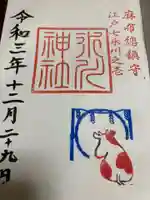 麻布總鎮守
江戸七氷川之壱
氷川
神社
令和三年十二月二十九日